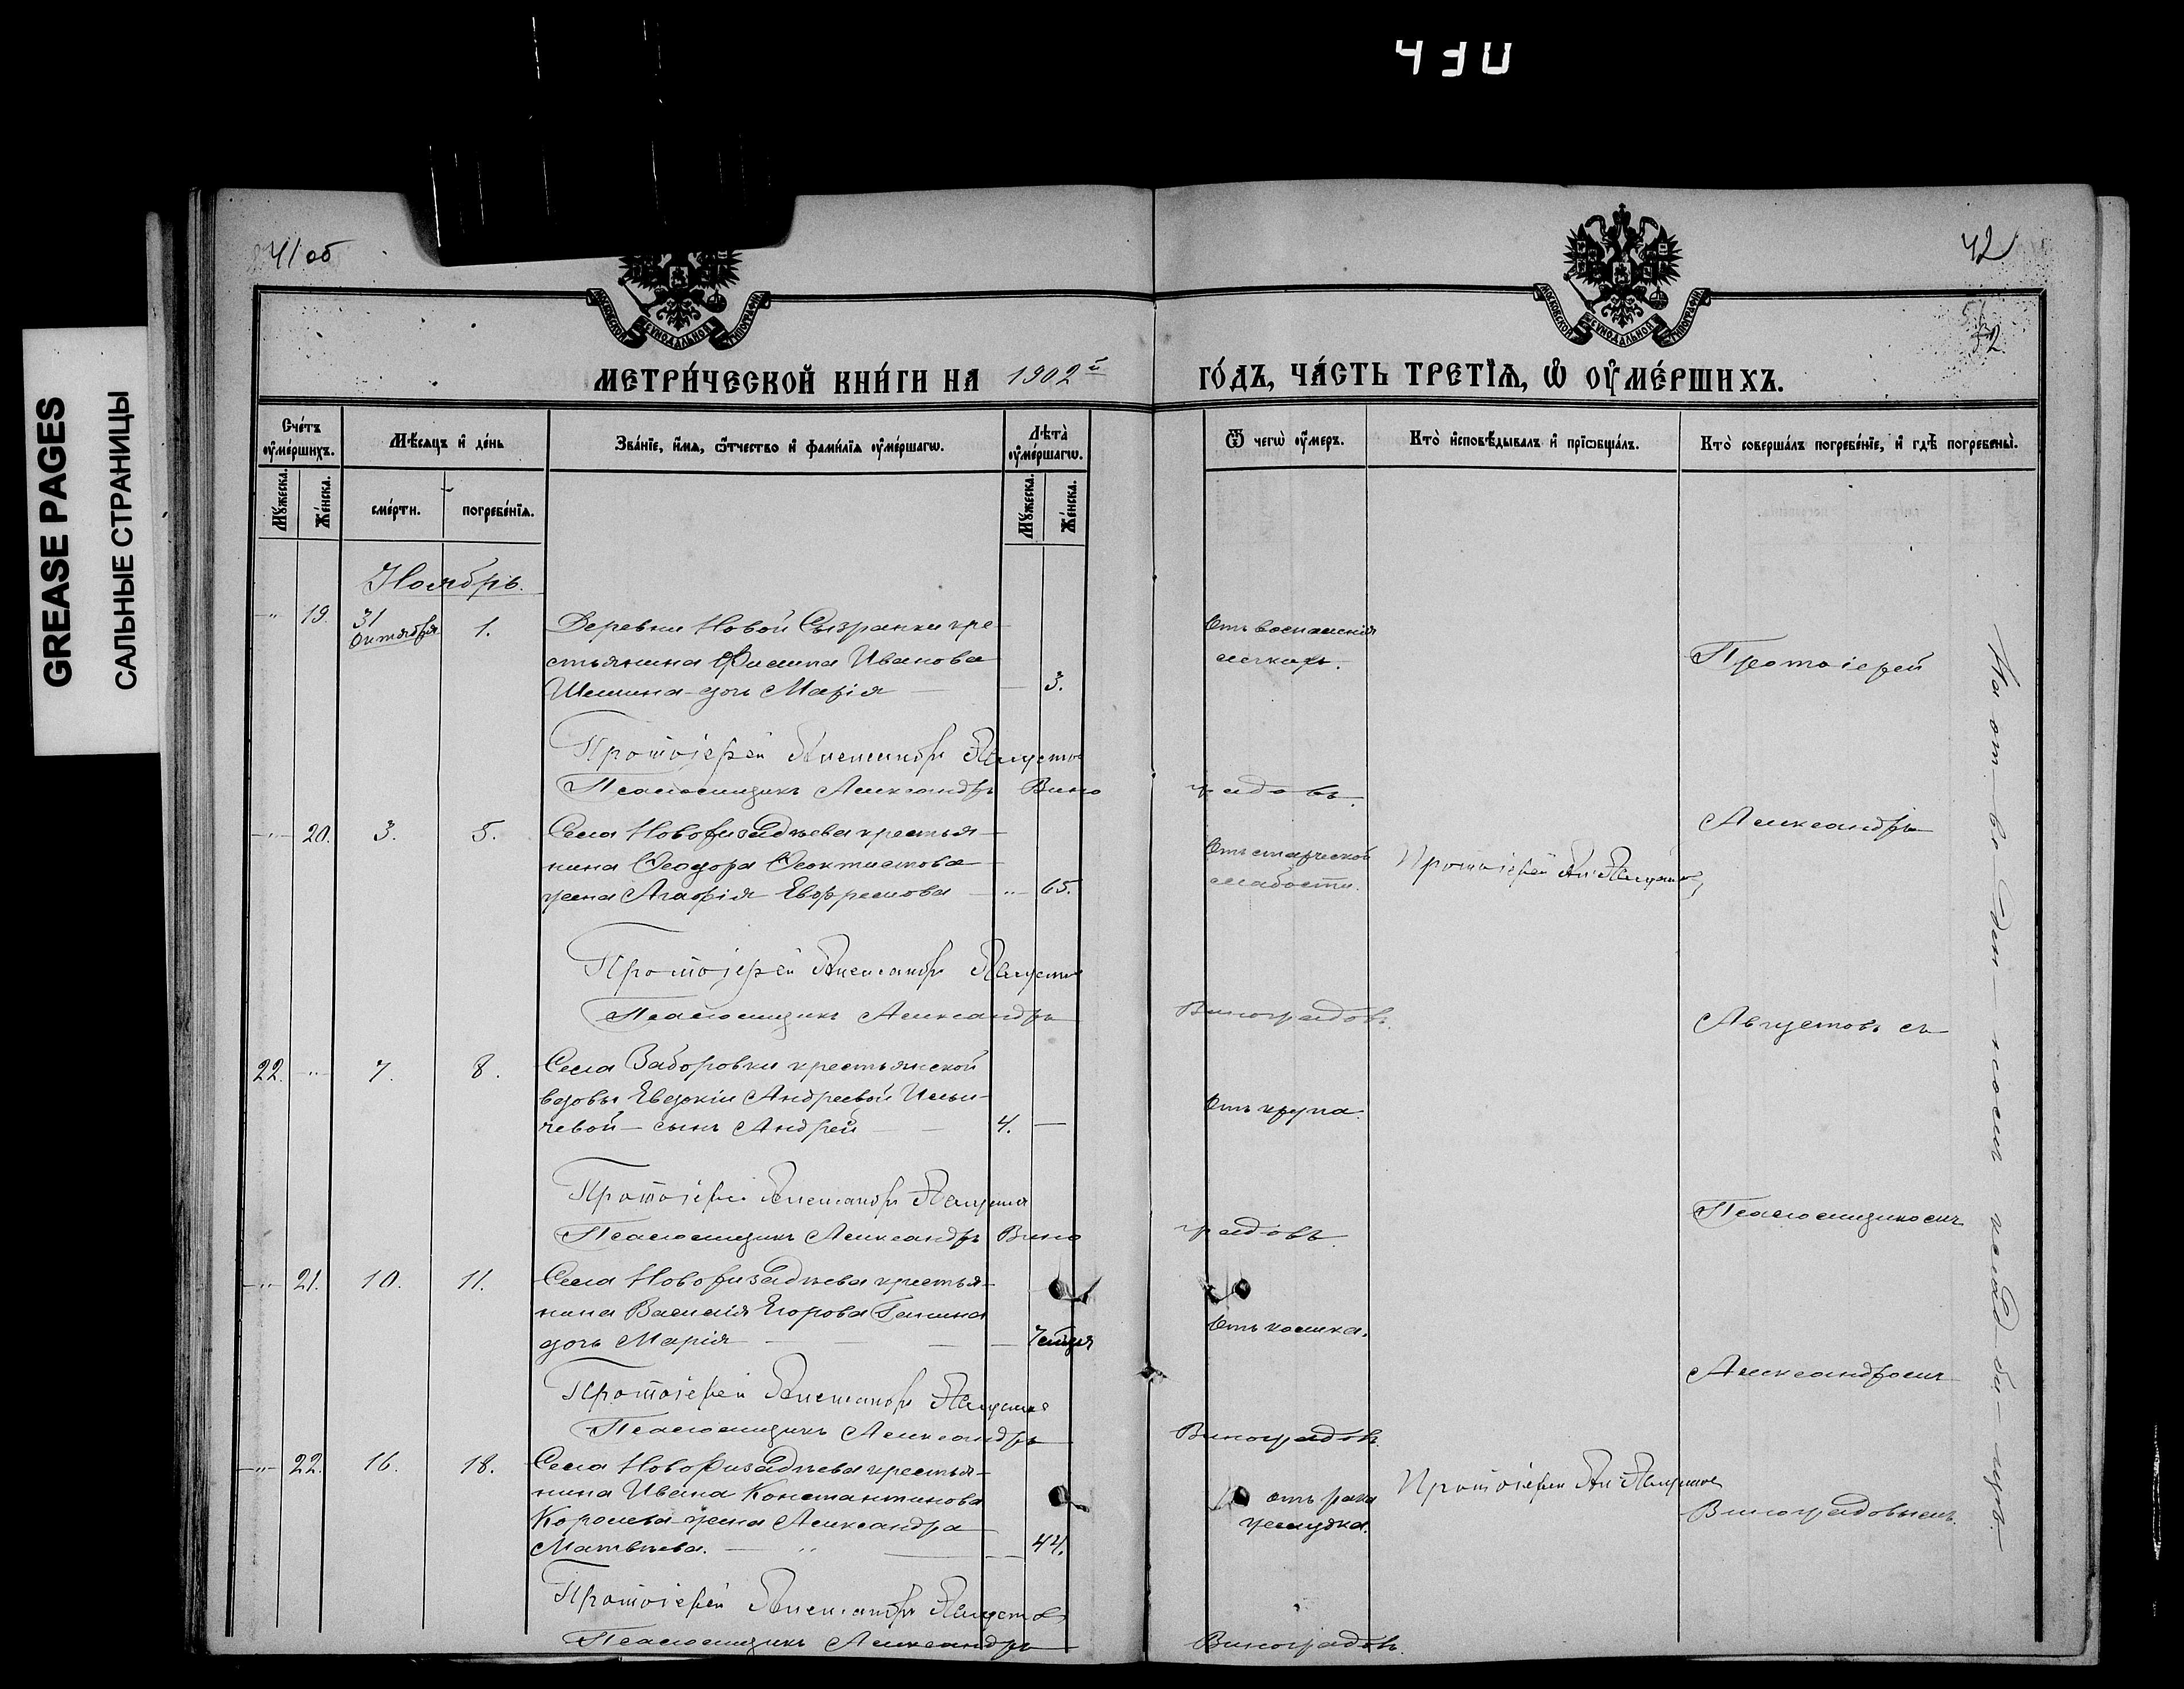 430
GREASE PAGES
САЛЬНЫЕ СТРАНИЦЫ
41 об
42
52
МОСКОВСКОЙ СѴНОДАЛЬНОЙ ТИПОГРАФІИ
МОСКОВСКОЙ СѴНОДАЛЬНОЙ ТИПОГРАФІИ
МЕТРИ́ЧЕСКОЙ КНИ́ГИ НА 1902й ГО́ДЪ, ЧА́СТЬ ТРЕТІЯ, Ѡ ОУМЕ́РШИХЪ.
Сче́тъ оуме́ршихъ.
Мѣ́сяцъ и де́нь
Зва́ніе, и́мя, ѻтчество и фами́лія оуме́ршагѡ.
Лѣта̀ оуме́ршагѡ.
Ѿ чегѡ̀ оу́меръ.
Кто̀ исповѣ́дывалъ и пріѡбща́лъ.
Кто̀ соверша́лъ погребе́ніе, и гдѣ̀ погребены̀.
Му́жеска.
Же́нска.
сме́рти.
погребе́нія.
Му́жеска.
Же́нска.
Ноябрь.
-"- 19. 31 Октября 1. Деревни Новой Сызранки кре-
стьянина Филипа Иванова
Шишина дочь Марія — 3.
Отъ воспаленія
легкихъ.
Протоіерей
Протоіерей Александръ Августовъ
Псаломщикъ Александръ Виноградовъ.
-"- 20. 3. 5. Села Новоризадѣева крестья-
нина Ѳеодора Ѳеоктистова
жена Агафія Ефремова -"- 65.
Отъ старческой
слабости.
Протоіерей Ал. Августовъ
Александръ
Протоіерей Александръ Августовъ
Псаломщикъ Александръ Виноградовъ.
Августовъ съ
22. -"- 7. 8. Села Заборовки крестьянской
вдовы Евдокіи Андреевой Ильи-
чевой — сынъ Андрей — 4. —
Отъ крупа.
Протоіерей Александръ Августовъ
Псаломщикъ Александръ Виноградовъ.
Псаломщикомъ
-"- 21. 10. 11. Села Новоризадѣева крестья-
нина Василія Егорова Ганина
дочь Марія
Отъ колика.
Александромъ
Протоіерей Александръ Августовъ
Псаломщикъ Александръ Виноградовъ.
-"- 22. 16. 18. Села Новоризадѣева крестья-
нина Ивана Константинова
Королева жена Александра
Матвѣева. — 44.
отъ рака
желудка.
Протоіерей Ал. Августовъ
Виноградовымъ.
Протоіерей Александръ Августовъ
Псаломщикъ Александръ Виноградовъ.